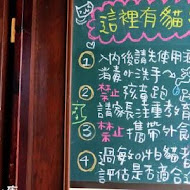 這裡有貓
① 入內後請先使用
消毒外洗手
② 禁止 孩童跑
請家長注重孩
③ 禁止攜帶外食
④ 過敏の怕貓者
評估是否適合